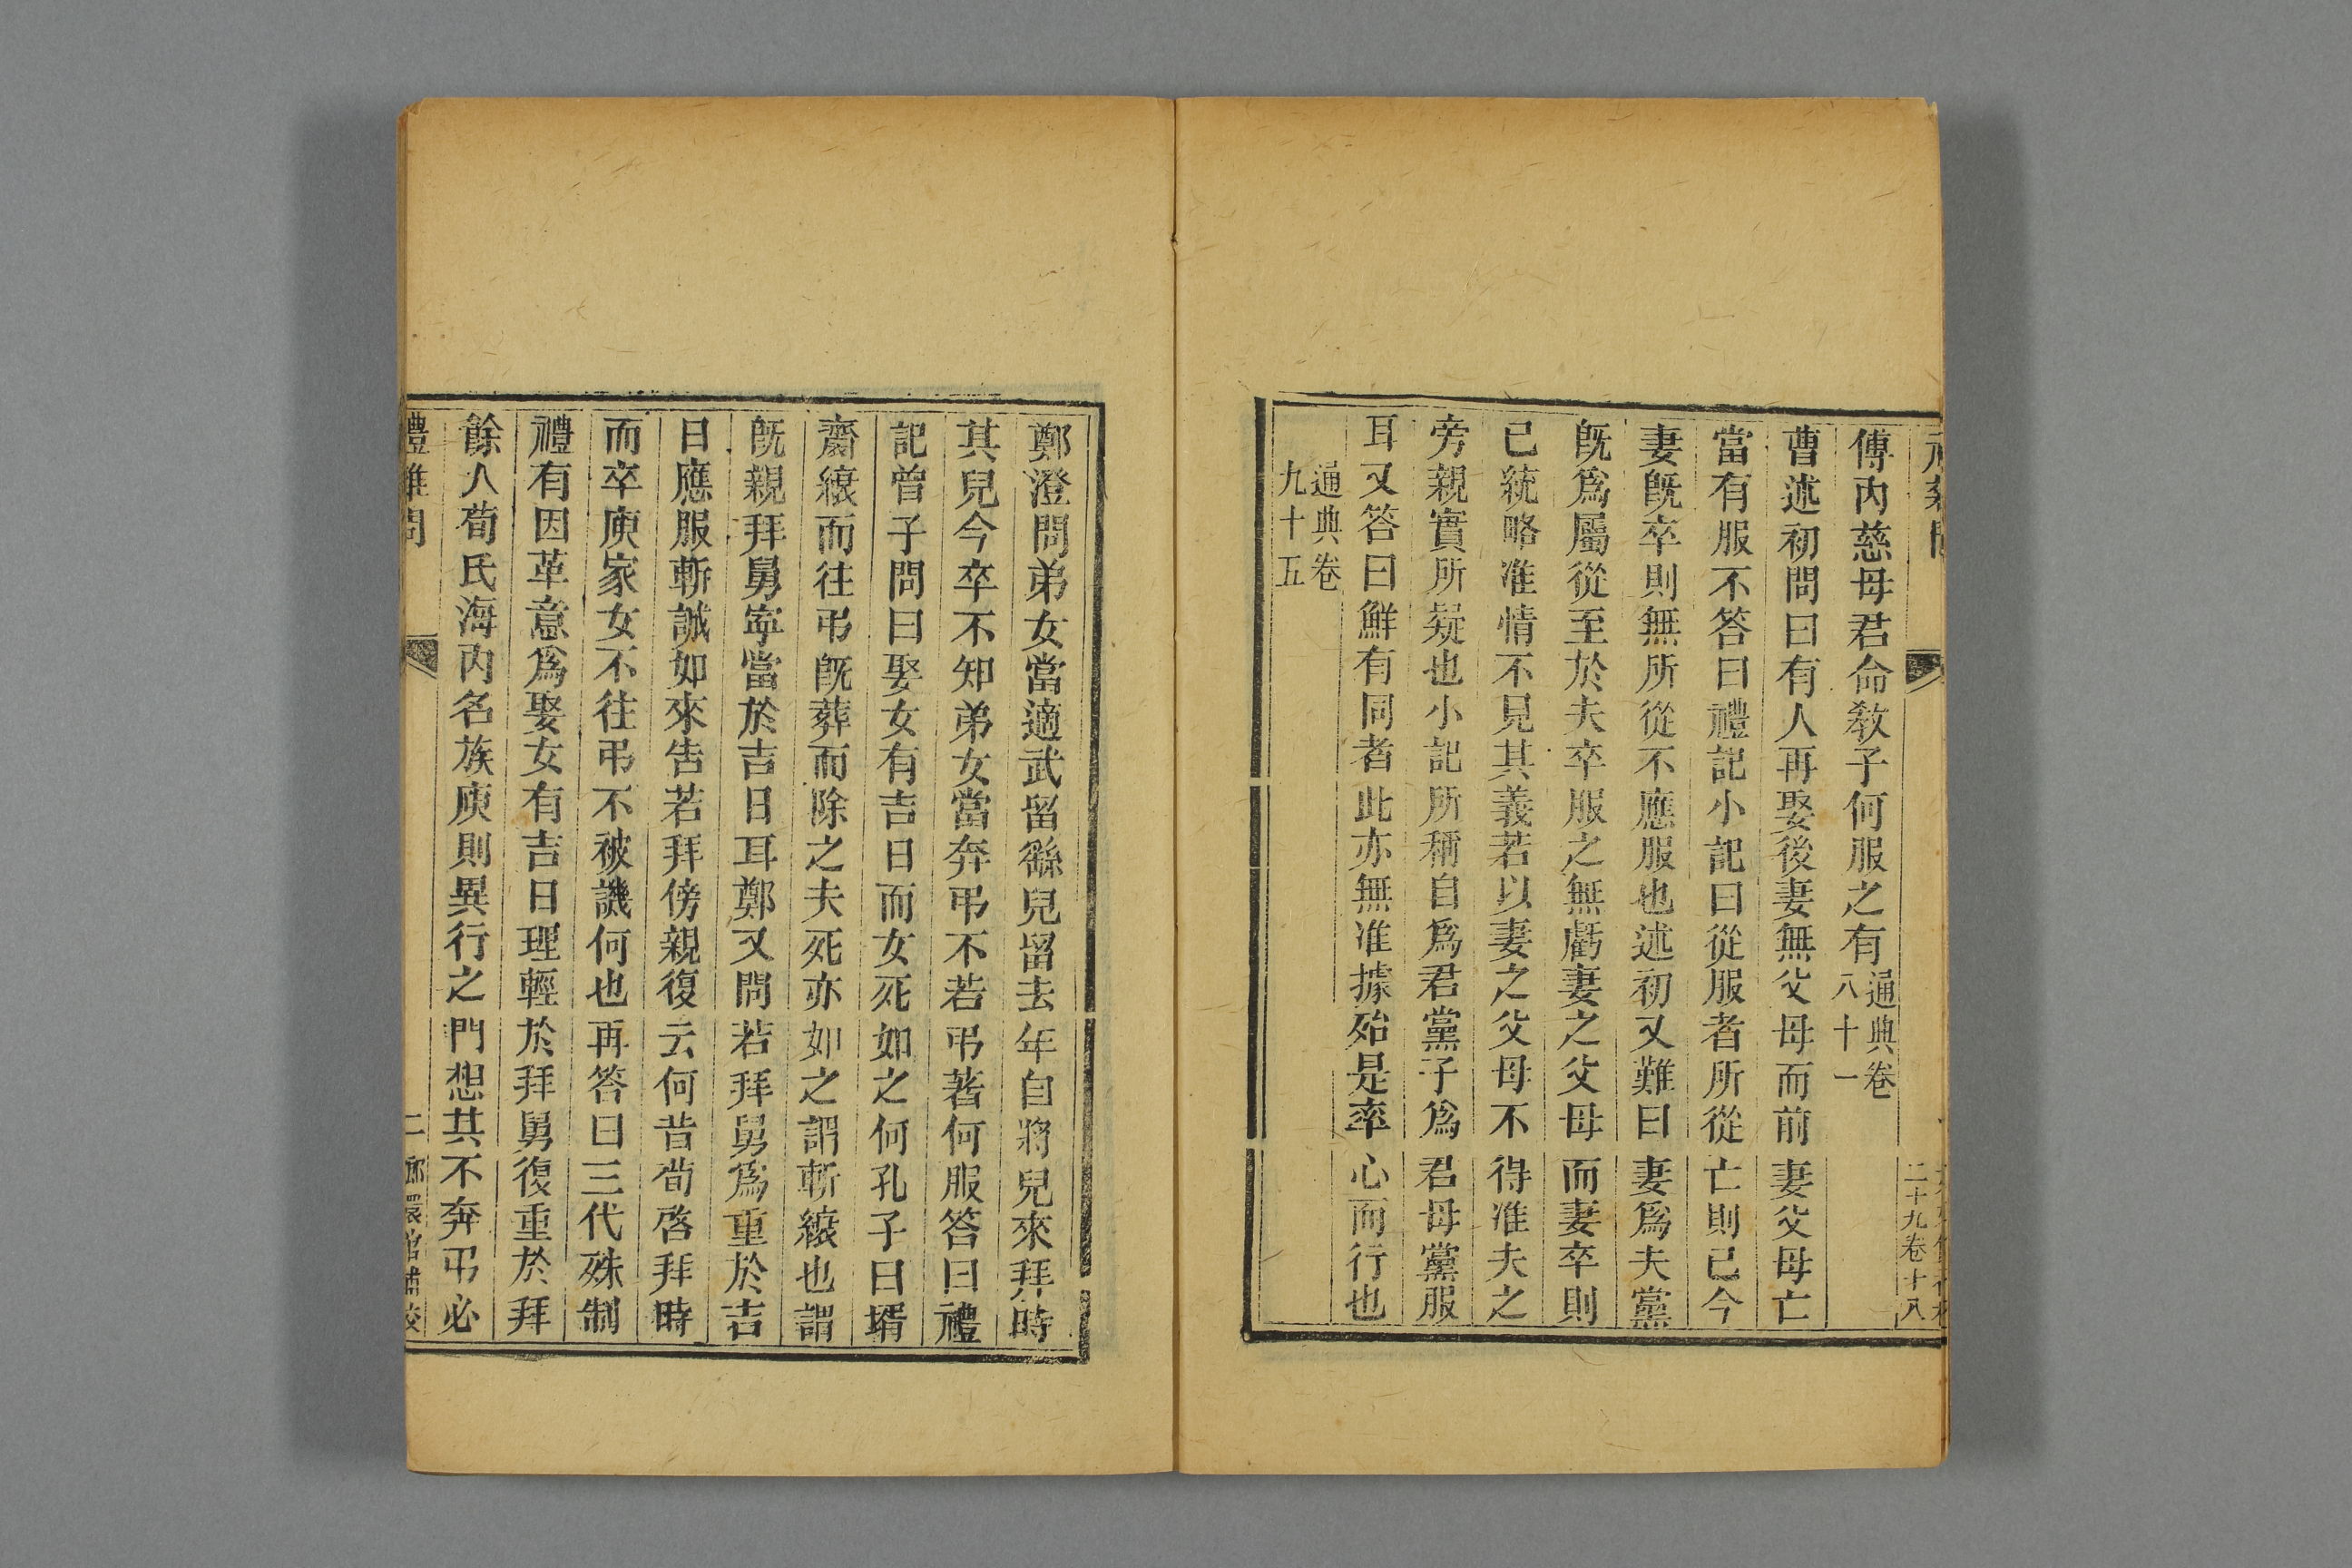 二十九卷十八
傅丙慈母君命教子何服之有通典卷八十一
曹述初問曰有人再娶後妻無父母而前妻父母亡
當有服不答曰禮記小記曰從服者所從亡則已今
妻旣卒則無所從不應服也述初又難曰妻爲夫黨
旣爲屬從至於夫卒服之無虧妻之父母而妻卒則
已統略准情不見其義若以妻之父母不得准夫之
旁親實所疑也小記所稱自爲君黨子爲君母黨服
耳又答曰鮮有同者此亦無准據殆是率心而行也
通典卷
九十五
鄭澄問弟女當適武留繇兒留去年自將兒來拜時
其兒今卒不知弟女當奔弔不若弔著何服答曰禮
記曾子問曰娶女有吉日而女死如之何孔子曰壻
齋縗而往弔旣葬而除之夫死亦如之謂斬縗也謂
旣親拜舅寧當於吉日耳鄭又問若拜舅爲重於吉
日應服斬誠如來告若拜傍親復云何昔荀啓拜時
而卒庾家女不往弔不被譏何也再答曰三代殊制
禮有因革意爲娶女有吉日理輕於拜舅復重於拜
餘人荀氏海內名族庾則異行之門想其不奔弔必
禮雜問 二 嫏嬛館補校